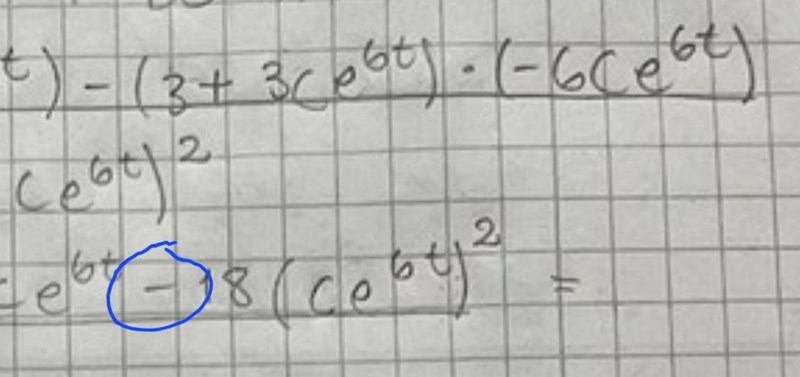 t) - (3 + 3Ce^{6t}) · (-6Ce^{6t})
Ce^{6t})^2
Ce^{6t} - 18(Ce^{6t})^2 =